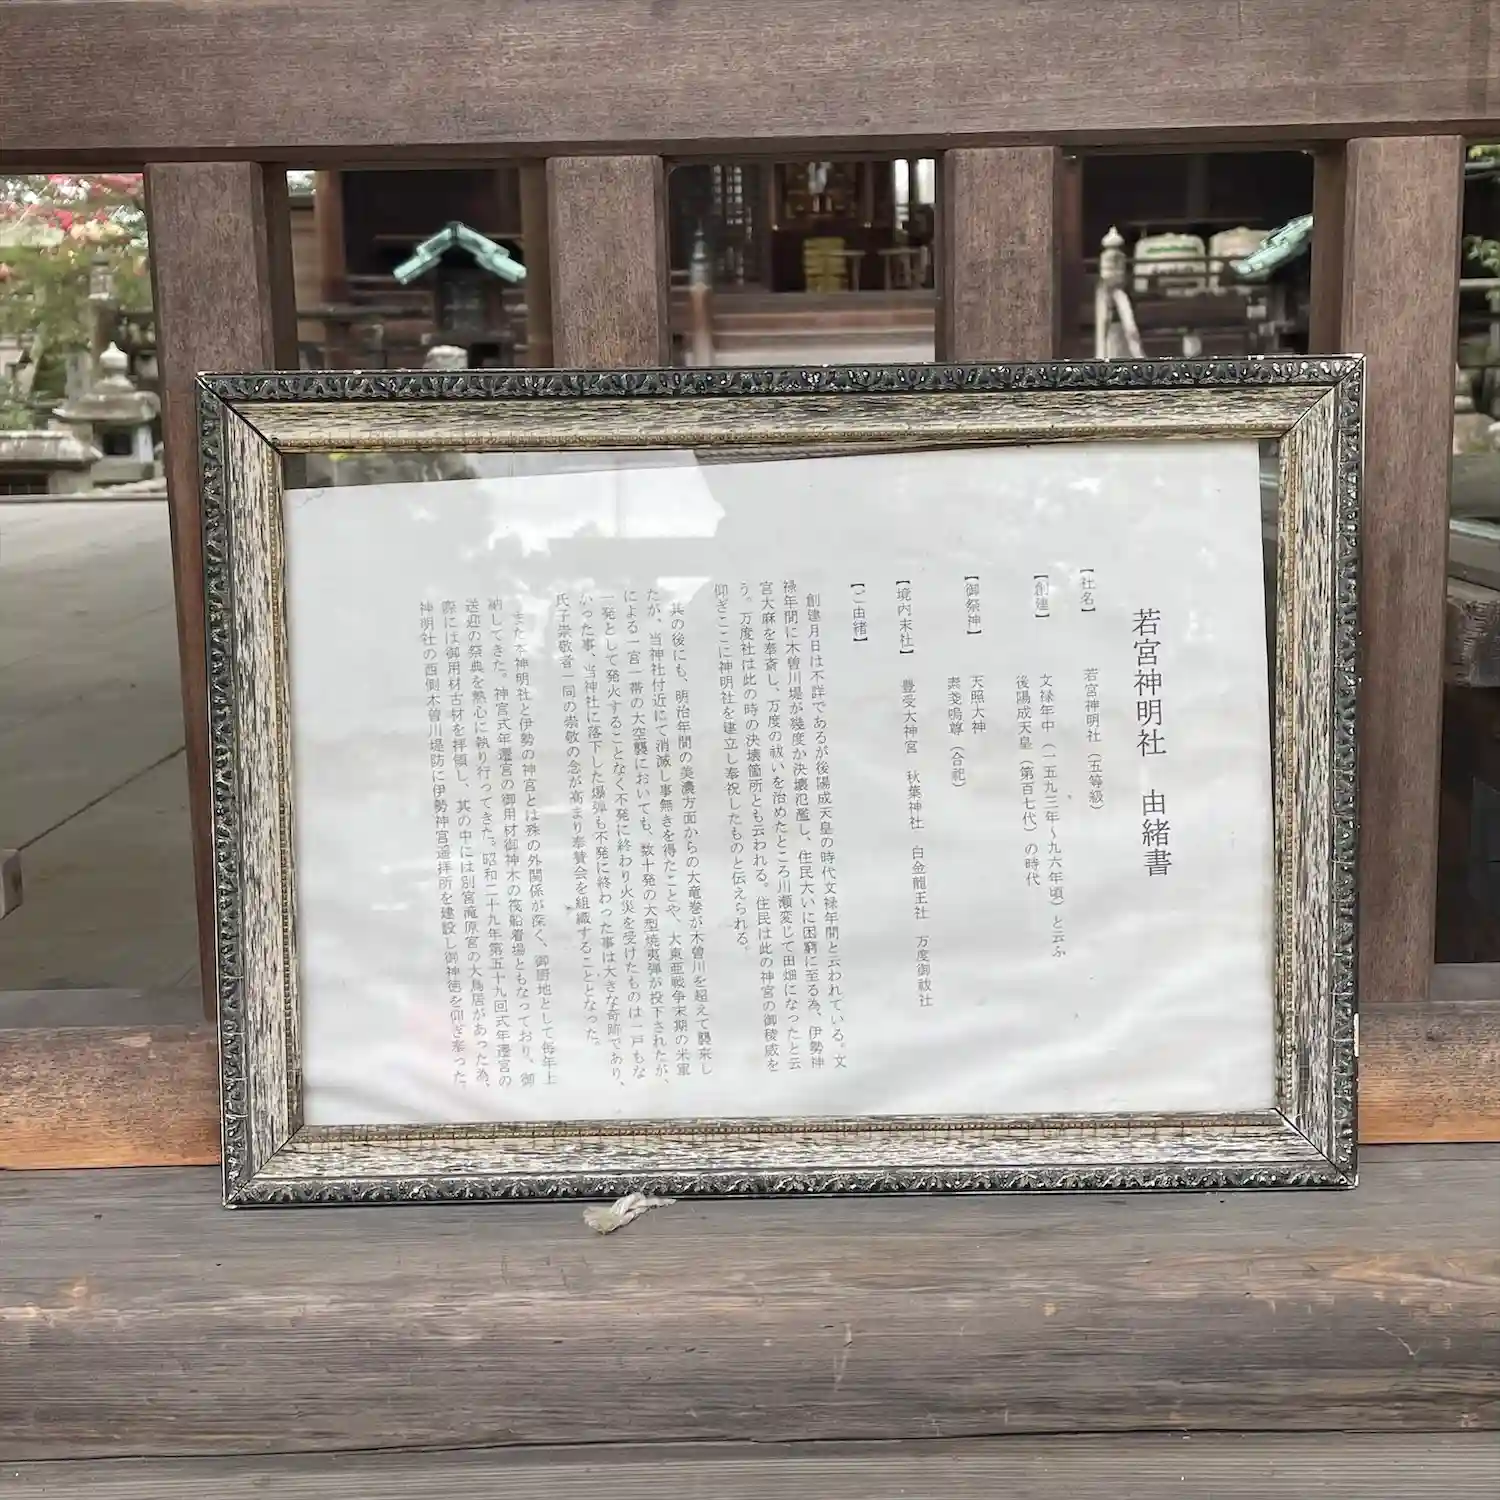 若宮神明社 由緒書
【社名】 若宮神明社（五等級）
【創建】 文禄年中（一五九三年～九六年頃）と云ふ
後陽成天皇（第百七代）の時代
【御祭神】 天照大神
素戔嗚尊（合祀）
【境内末社】 豊受大神宮 秋葉神社 白金龍王社 万度御祓社
【ご由緒】
創建月日は不詳であるが後陽成天皇の時代文禄年間と云われている。文
禄年間に木曽川堤が幾度か決壊氾濫し、住民大いに困窮に至る為、伊勢神
宮大麻を奉斎し、万度の祓いを治めたところ川瀬変じて田畑になったと云
う。万度社は此の時の決壊箇所とも云われる。住民は此の神宮の御稜威を
仰ぎここに神明社を建立し奉祝したものと伝えられる。
其の後にも、明治年間の美濃方面からの大竜巻が木曽川を超えて襲来し
たが、当神社付近にて消滅し事無きを得たことや、大東亜戦争末期の米軍
による一宮一帯の大空襲においても、数十発の大型焼夷弾が投下されたが、
一発として発火することなく不発に終わり火災を受けたものは一戸もな
かった事、当神社に落下した爆弾も不発に終わった事は大きな奇跡であり、
氏子崇敬者一同の崇敬の念が高まり奉賛会を組織することとなった。
また本神明社と伊勢の神宮とは殊の外関係が深く、御厨地として毎年上
納してきた。神宮式年遷宮の御用材御神木の筏船着場ともなっており、御
送迎の祭典を熱心に執り行ってきた。昭和二十九年第五十九回式年遷宮の
際には御用材古材を拝領し、其の中には別宮滝原宮の大鳥居があった為、
神明社の西側木曽川堤防に伊勢神宮遥拝所を建設し御神徳を仰ぎ奉った。